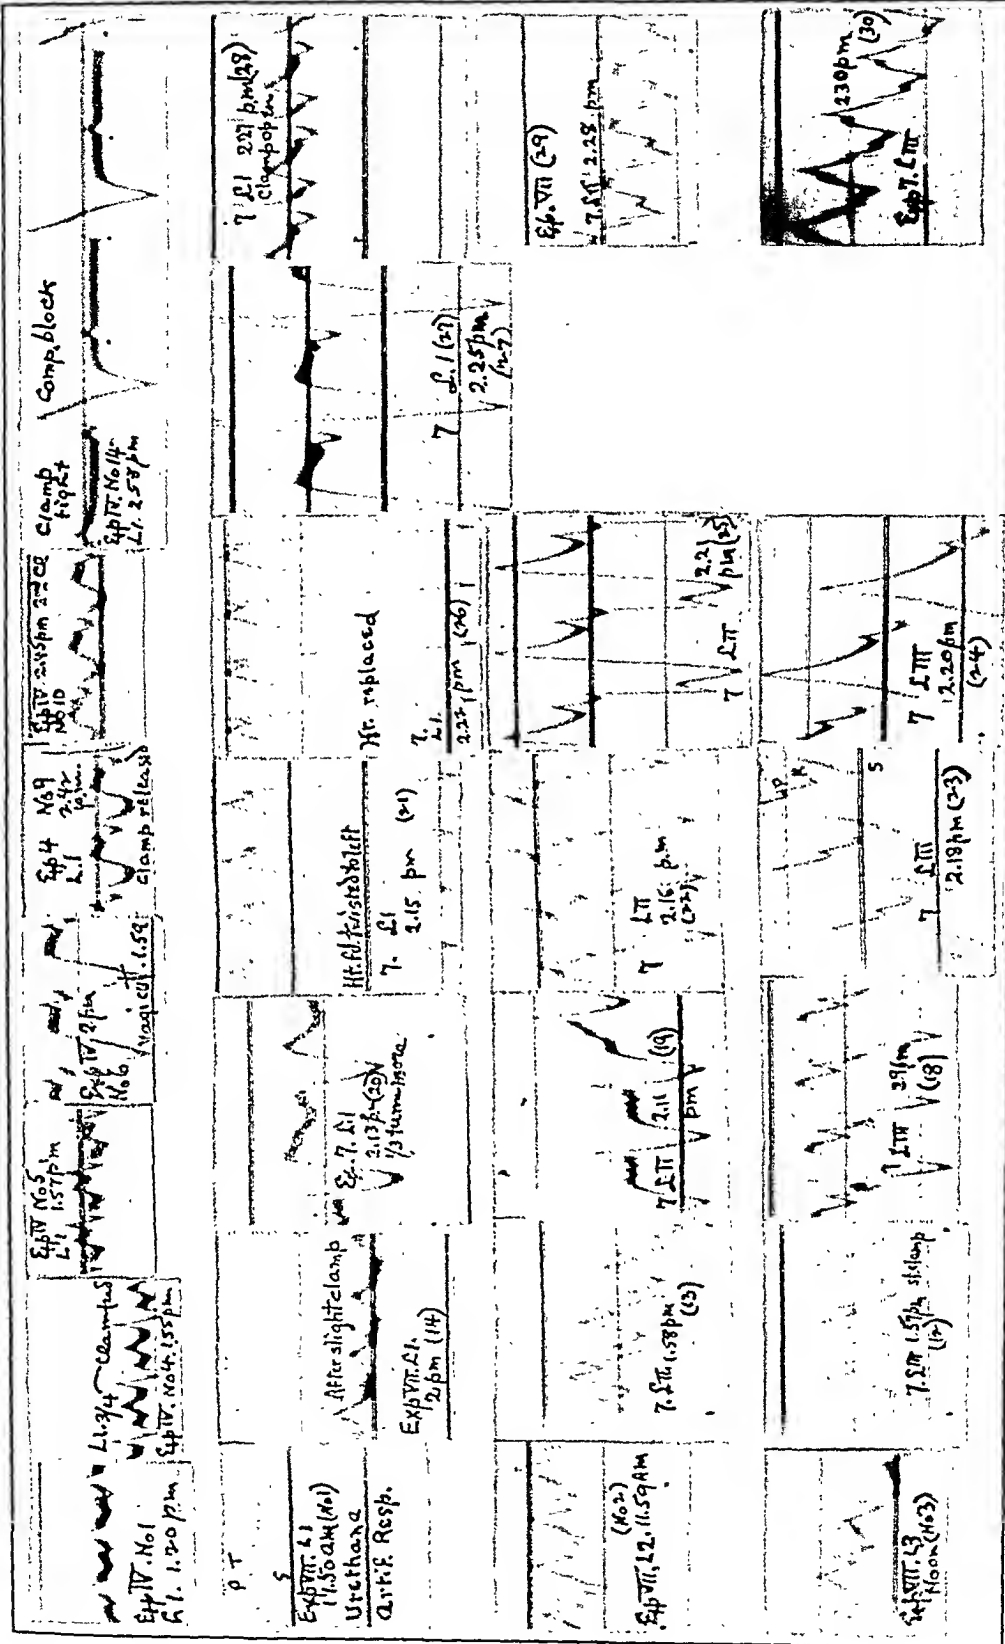 Exp IV. No1
L1. 1.20 pm.
L1. 3/4 clamped
Exp IV. No 4. 1.55 pm
Exp IV No 5
L1 1.57 pm
Exp IV, 2 pm
No 6
Vagi cut. 1.59
Exp 4 No 9
L.1 2.42 p.m.
Clamp released
Exp IV 2.45 pm
No 10
Clamp tight
Exp IV. No 14
L1. 2.58 pm
Comp. block
P T
S
Exp VII. L1
11.50 am (No1)
Urethana
Artif. Resp.
After slight clamp
Exp VII. L1.
2 pm (14)
Ex. 7. L1
2.13 pm (20)
1/3 turn more
Ht. twisted to left
7. L1
2.15 pm (21)
Ht. replaced
7. L1.
2.22 pm (26)
7 L.1 (27)
2.25 pm
(27)
7 L1 2.27 p.m (28)
Clamp open
(No2)
Exp VII, L2, 11.59 AM
7. LII, 1.58 pm
(13)
7. LII 2.11 (19)
pm
7 LII
2.16 p.m
(22)
7 LII 2.21
pm (25)
Exp. VII (29)
7. LII 2.28 pm
Exp VII. L3
Noon (No3)
7. LIII 1.57 pm sl. clamp
(12)
7 LIII 2.9 pm
(18)
UP
R
S
7 LIII
2.18 pm (23)
7 LIII
2.20 pm
(24)
Exp 7. LIII
2 30 pm
(30)